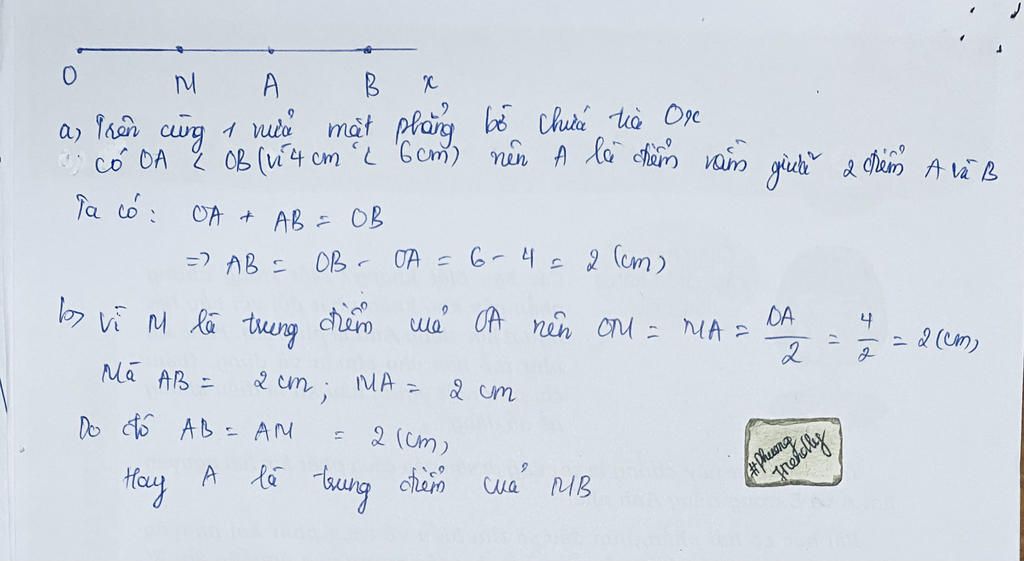 O M A B x
a, Trên cùng 1 nửa mặt phẳng bờ chứa tia Ox
có OA < OB (vì 4 cm < 6 cm) nên A là điểm nằm giữa 2 điểm A và B
Ta có: OA + AB = OB
=> AB = OB - OA = 6 - 4 = 2 (cm)
b, Vì M là trung điểm của OA nên OM = MA = OA/2 = 4/2 = 2 (cm)
Mà AB = 2 cm; MA = 2 cm
Do đó AB = AM = 2 (cm)
Hay A là trung điểm của MB
#phuong
friendlly